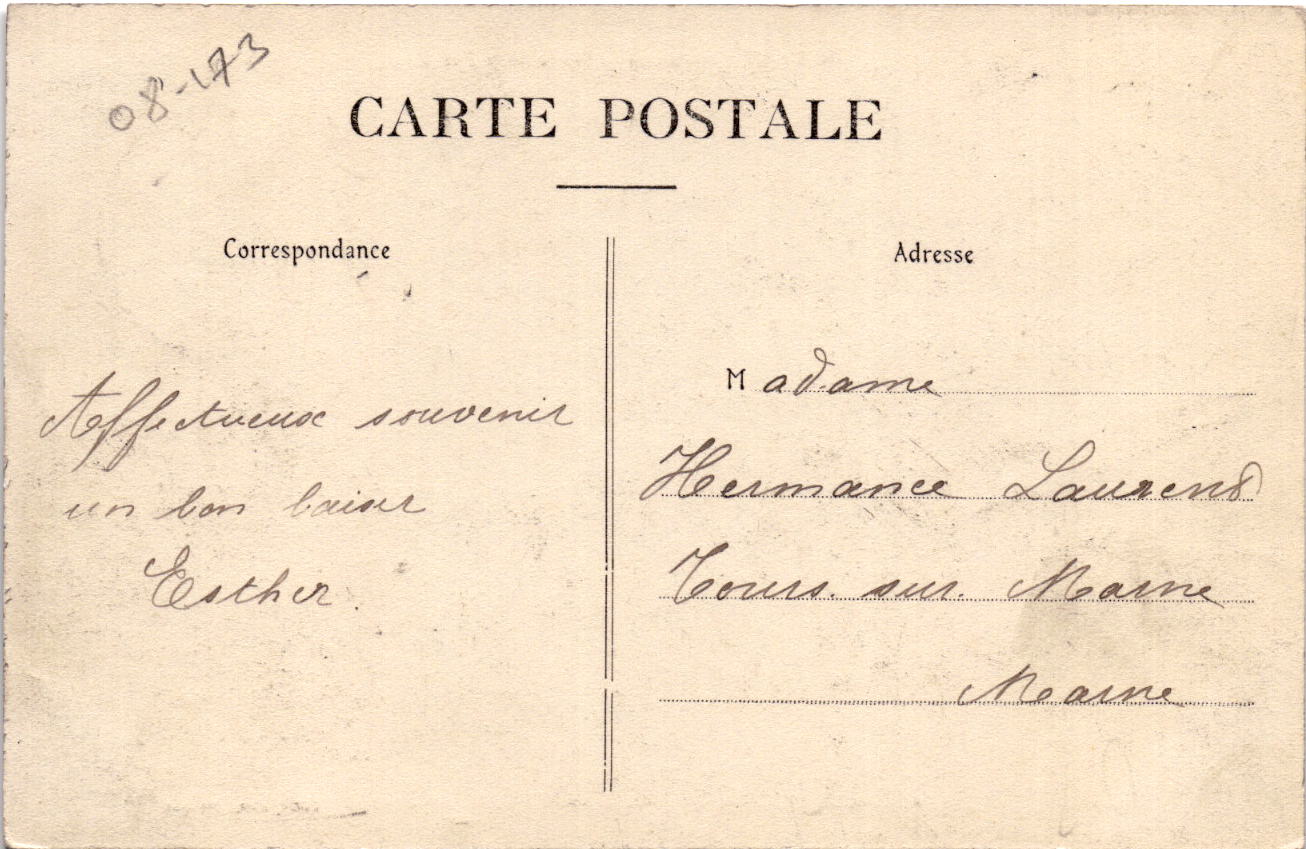 08-173
CARTE POSTALE
Correspondance
Affectueux souvenir
un bon baiser
Esther.
Adresse
Madame
Hermance Laurent
Tours. sur. Marne
Marne